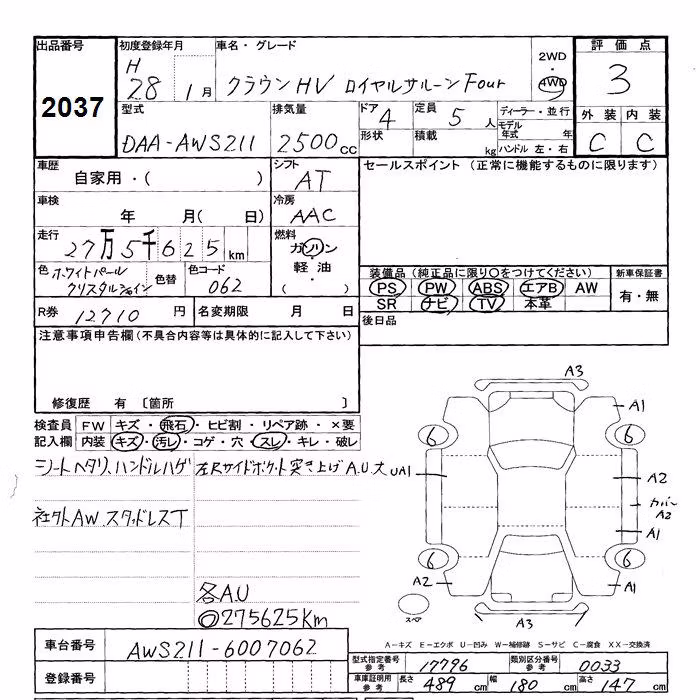 出品番号
2037
初度登録年月
H
28 1月
車名・グレード
クラウンHV ロイヤルサルーンFour
2WD
・
4WD
評価点
3
外装 内装
C C
型式
DAA-AWS211
排気量
2500cc
ドア 4
形状
定員 5人
積載 kg
ディーラー・並行
モデル年式 年
ハンドル 左・右
車歴
自家用・( )
シフト
AT
セールスポイント (正常に機能するものに限ります)
車検
年 月( 日)
冷房
AAC
走行
27万5千625km
燃料
ガソリン
軽油
( )
色 ホワイトパール
クリスタルシャイン
色替
色コード
062
装備品 (純正品に限り〇をつけてください)
PS PW ABS エアB AW
SR ナビ TV 本革
新車保証書
有・無
R券 12710 円
名変期限 月 日
後日品
注意事項申告欄(不具合内容等は具体的に記入して下さい)
修復歴 有 〔箇所 〕
検査員
記入欄
FW キズ・飛石・ヒビ割・リペア跡・×要
内装 キズ・汚レ・コゲ・穴・スレ・キレ・破レ
シートヘタリ、ハンドルハゲ
左Rサイドポケット突き上げA.U.大
社外AW.スタッドレスT
各A.U
◎275625Km
A3
A1
6
6
UA1
A2
カバー
A2
A1
6
6
A2
A1
スペア
A3
A-キズ E-エクボ U-凹み W-補修跡 S-サビ C-腐食 XX-交換済
車台番号
AWS211-6007062
登録番号
型式指定番号
参考
17796
類別区分番号
参考
0033
車庫証明用
参考
長さ 489 cm
幅 180 cm
高さ 147 cm